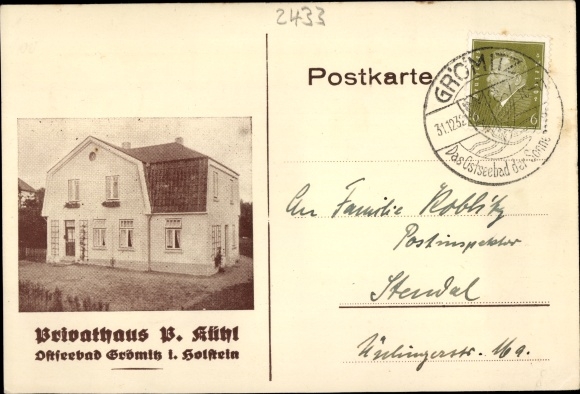 2433
Postkarte
6 6
GRÖMITZ
31.12.32
Das Ostseebad der Sonne
An Familie Koblitz
Postinspektor
Stendal
Privathaus P. Kühl
Ostseebad Grömitz i. Holstein